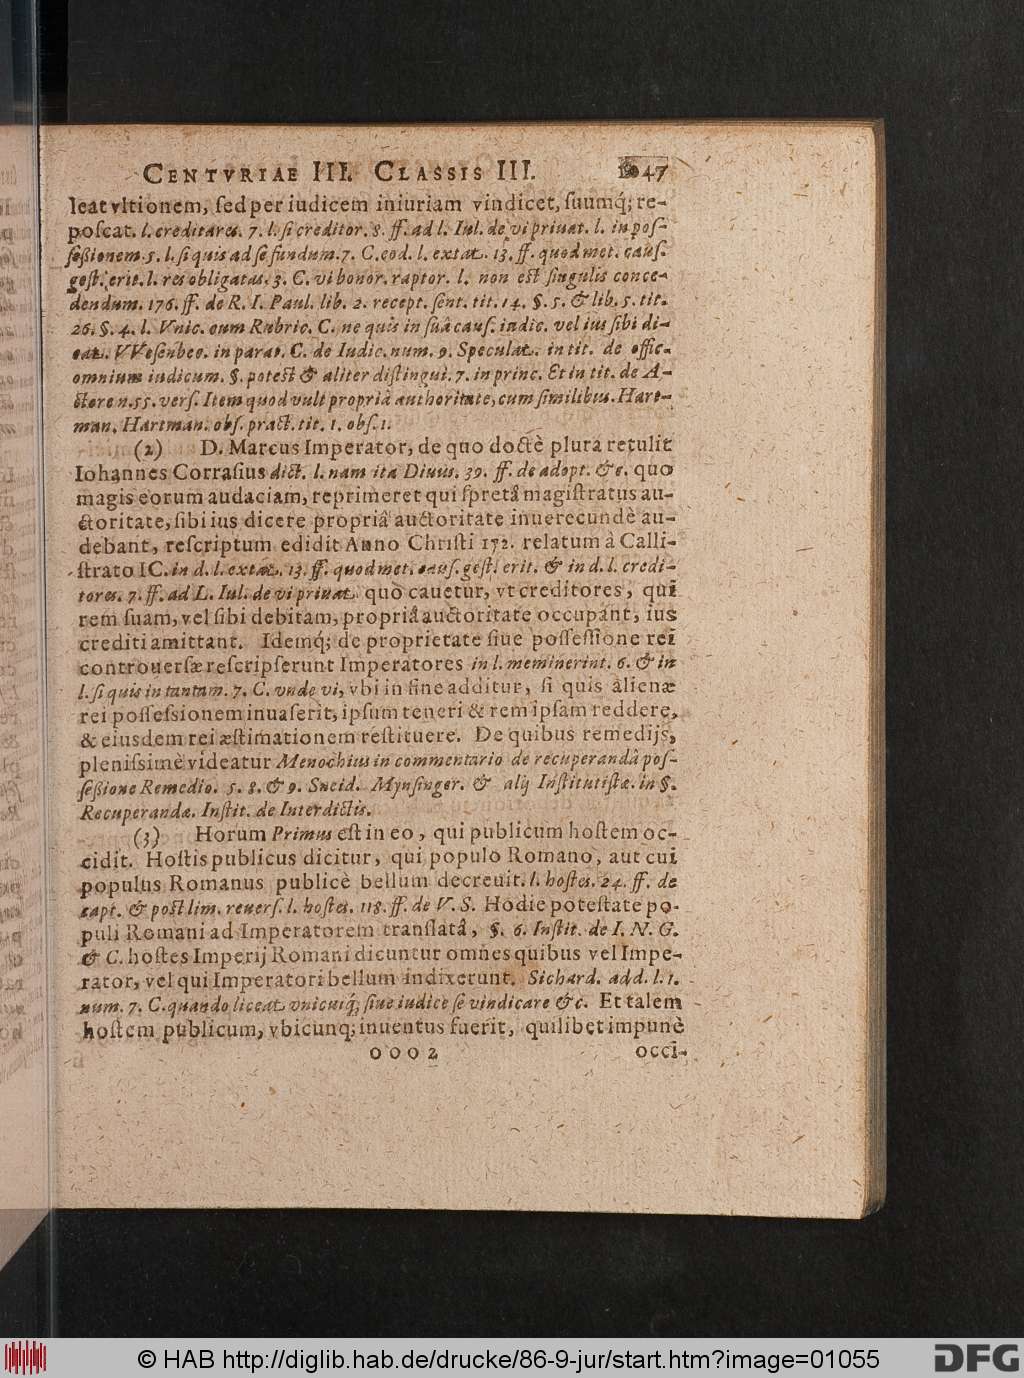 CENTVRIAE III. CLASSIS III. 1047
leat vltionem, ſed per iudicem iniuriam vindicet, ſuumq́; re-
poſcat. l. creditores. 7. l. ſi creditor. 8. ff. ad l. Iul. de vi priuat. l. in poſ-
ſeßionem. 5. l. ſi quis ad ſe fundum. 7. C. eod. l. extat. 13. ff. quod met. cauſ.
geſt. erit. l. res obligatas. 3. C. vi bonor. raptor. l. non eſt ſingulis conce-
dendum. 176. ff. de R. I. Paul. lib. 2. recept. ſent. tit. 14. §. 5. & lib. 5. tit.
26. §. 4. l. Vnic. cum Rubric. C. ne quis in ſuâ cauſ. iudic. vel ius ſibi di-
cat. VVeſenbec. in parat. C. de Iudic. num. 9. Speculat. in tit. de offic.
omnium iudicum. §. poteſt & aliter diſtingui. 7. in princ. Et in tit. de A-
ctore n. 55. verſ. Item quod vult propriâ authoritate, cum ſimilibus. Hart-
man. Hartman. obſ. pract. tit. 1. obſ. 1.
(2) D. Marcus Imperator, de quo doctè plura retulit
Iohannes Corraſius dict. l. nam ita Diuus. 39. ff. de adopt. &c. quo
magis eorum audaciam, reprimeret qui ſpretâ magiſtratus au-
ctoritate, ſibi ius dicere propriâ auctoritate inuerecundè au-
debant, reſcriptum edidit Anno Chriſti 172. relatum à Calli-
ſtrato IC. in d. l. extat. 13. ff. quod met. cauſ. geſt. erit. & in d. l. credi-
tores. 7. ff. ad L. Iul. de vi priuat. quo cauetur, vt creditores, qui
rem ſuam, vel ſibi debitam, propriâ auctoritate occupant, ius
crediti amittant. Idemq́; de proprietate ſiue poſſeſſione rei
controuerſæ reſcripſerunt Imperatores in l. meminerint. 6. & in
l. ſi quis in tantam. 7. C. vnde vi, vbi in fine additur, ſi quis alienæ
rei poſſeſsionem inuaſerit, ipſum teneri & rem ipſam reddere,
& eiusdem rei æſtimationem reſtituere. De quibus remedijs,
pleniſsimè videatur Menochius in commentario de recuperandâ poſ-
ſeßione Remedio. 5. 8. & 9. Sneid. Mynſinger. & alij Inſtitutiſtæ. in §.
Recuperandæ. Inſtit. de Interdictis.
(3) Horum Primus eſt in eo, qui publicum hoſtem oc-
cidit. Hoſtis publicus dicitur, qui populo Romano, aut cui
populus Romanus publicè bellum decreuit. l. hoſtes. 24. ff. de
capt. & poſt lim. reuerſ. l. hoſtes. 118. ff. de V. S. Hodie poteſtate po-
puli Romani ad Imperatorem translatâ, §. 6. Inſtit. de I. N. G.
& C. hoſtes Imperij Romani dicuntur omnes quibus vel Impe-
rator, vel qui Imperatori bellum indixerunt. Sichard. add. l. 1.
num. 7. C. quando liceat vnicuiq́; ſine iudice ſe vindicare &c. Et talem
hoſtem publicum, vbicunq; inuentus fuerit, quilibet impunè
O o o o 2 occi-
© HAB http://diglib.hab.de/drucke/86-9-jur/start.htm?image=01055
DFG